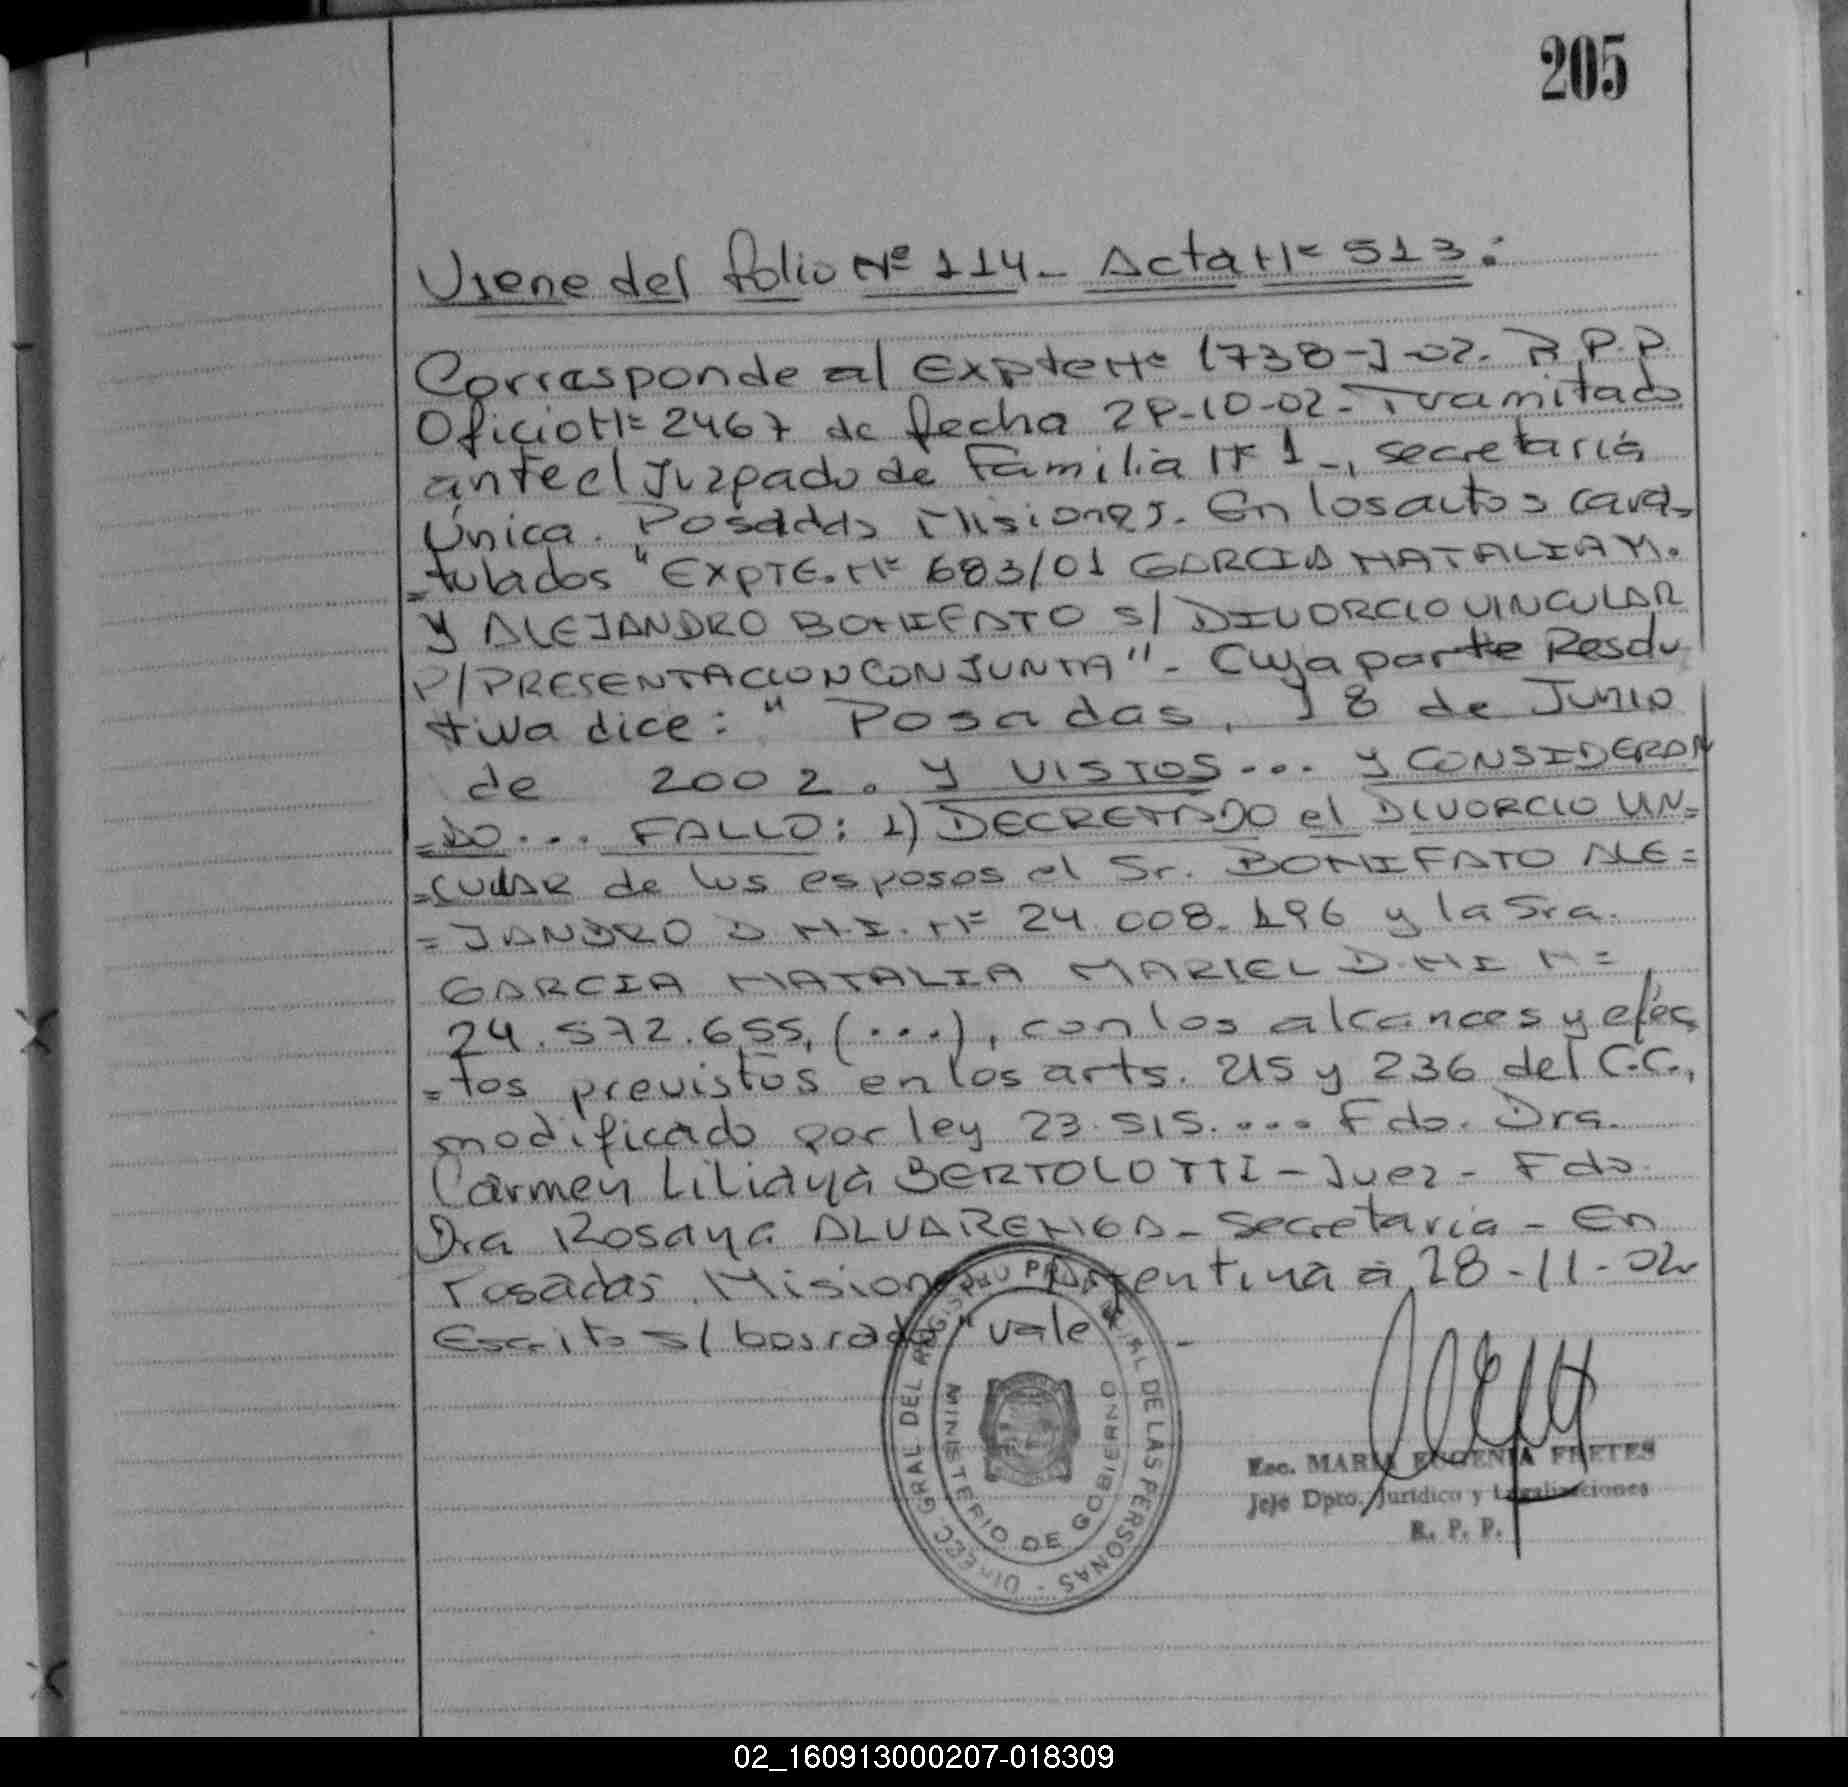 205
Viene del folio Nº 114 - Acta Nº 513:
Corresponde al Expte Nº 1738-J-02. R.P.P.
Oficio Nº 2467 de fecha 29-10-02- Tramitado
ante el Juzgado de Familia Nº 1 -, secretaria
Única. Posadas Misiones. En los autos cara-
=tulados "EXPTE. Nº 683/01 GARCIA NATALIA M.
Y ALEJANDRO BONIFATO S/ DIVORCIO VINCULAR
P/PRESENTACION CONJUNTA"- Cuya parte Resolu
tiva dice: "Posadas, 18 de Junio
de 2002. Y VISTOS... Y CONSIDERAN
=DO... FALLO: 1) DECRETADO el DIVORCIO VIN=
=CULAR de los esposos el Sr. BONIFATO ALE=
=JANDRO D.N.I. Nº 24.008.196 y la Sra.
GARCIA NATALIA MARIEL D.NI Nº
24.572.655, (...), con los alcances y efec
=tos previstos en los arts. 215 y 236 del C.C.,
modificado por ley 23.515.... Fdo. Dra.
Carmen Liliana BERTOLOTTI - Juez - Fdo.
Dra Rosana ALVARENGA - Secretaria - En
Posadas, Misiones Argentina a 28-11-02
Escrito s/ borrado "vale" -
DIRECC. GRAL DEL REGISTRO PROVINCIAL DE LAS PERSONAS -
MINISTERIO DE GOBIERNO
Esc. MARIA EUGENIA FRETES
Jefe Dpto. Juridico y Legalizaciones
R. P. P.
02_160913000207-018309